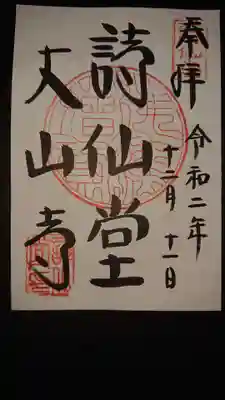 奉拝
令和二年
十二月十一日
詩仙堂
丈山寺